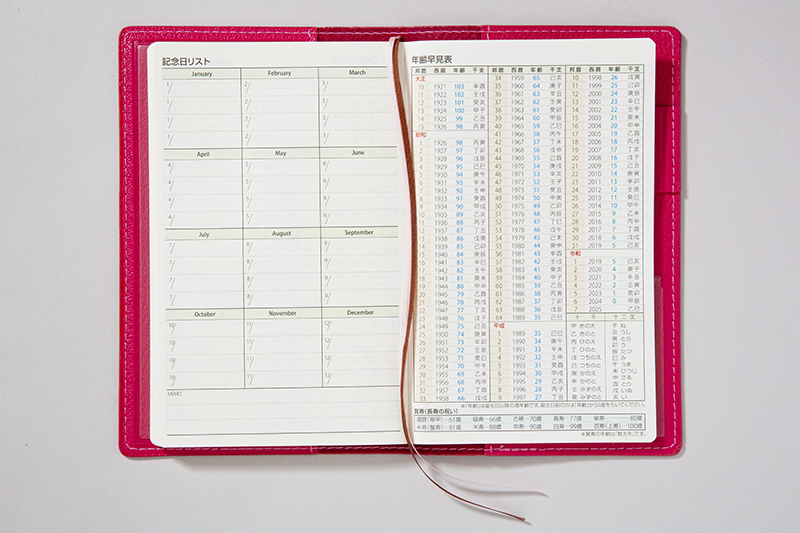 記念日リスト
January February March
1/ 2/ 3/
1/ 2/ 3/
1/ 2/ 3/
1/ 2/ 3/
April May June
4/ 5/ 6/
4/ 5/ 6/
4/ 5/ 6/
4/ 5/ 6/
July August September
7/ 8/ 9/
7/ 8/ 9/
7/ 8/ 9/
7/ 8/ 9/
October November December
10/ 11/ 12/
10/ 11/ 12/
10/ 11/ 12/
10/ 11/ 12/
MEMO
年齢早見表
邦暦 西暦 年齢 干支 邦暦 西暦 年齢 干支 邦暦 西暦 年齢 干支
大正 34 1959 65 己亥 10 1998 26 戊寅
10 1921 103 辛酉 35 1960 64 庚子 11 1999 25 己卯
11 1922 102 壬戌 36 1961 63 辛丑 12 2000 24 庚辰
12 1923 101 癸亥 37 1962 62 壬寅 13 2001 23 辛巳
13 1924 100 甲子 38 1963 61 癸卯 14 2002 22 壬午
14 1925 99 乙丑 39 1964 60 甲辰 15 2003 21 癸未
15 1926 98 丙寅 40 1965 59 乙巳 16 2004 20 甲申
昭和 41 1966 58 丙午 17 2005 19 乙酉
1926 98 丙寅 42 1967 57 丁未 18 2006 18 丙戌
1927 97 丁卯 43 1968 56 戊申 19 2007 17 丁亥
1928 96 戊辰 44 1969 55 己酉 20 2008 16 戊子
1929 95 己巳 45 1970 54 庚戌 21 2009 15 己丑
1930 94 庚午 46 1971 53 辛亥 22 2010 14 庚寅
1931 93 辛未 47 1972 52 壬子 23 2011 13 辛卯
1932 92 壬申 48 1973 51 癸丑 24 2012 12 壬辰
1933 91 癸酉 49 1974 50 甲寅 25 2013 11 癸巳
1934 90 甲戌 50 1975 49 乙卯 26 2014 10 甲午
1935 89 乙亥 51 1976 48 丙辰 27 2015 9 乙未
1936 88 丙子 52 1977 47 丁巳 28 2016 8 丙申
1937 87 丁丑 53 1978 46 戊午 29 2017 7 丁酉
1938 86 戊寅 54 1979 45 己未 30 2018 6 戊戌
1939 85 己卯 55 1980 44 庚申 31 2019 5 己亥
1940 84 庚辰 56 1981 43 辛酉 令和
1941 83 辛巳 57 1982 42 壬戌 1 2019 5 己亥
1942 82 壬午 58 1983 41 癸亥 2 2020 4 庚子
1943 81 癸未 59 1984 40 甲子 3 2021 3 辛丑
1944 80 甲申 60 1985 39 乙丑 4 2022 2 壬寅
1945 79 乙酉 61 1986 38 丙寅 5 2023 1 癸卯
1946 78 丙戌 62 1987 37 丁卯 6 2024 0 甲辰
1947 77 丁亥 63 1988 36 戊辰 7 2025 乙巳
23 1948 76 戊子 64 1989 35 己巳 十干 十二支
24 1949 75 己丑 平成 甲 きのえ 子 ね
25 1950 74 庚寅 1 1989 35 己巳 乙 きのと 丑 うし
26 1951 73 辛卯 2 1990 34 庚午 丙 ひのえ 寅 とら
27 1952 72 壬辰 3 1991 33 辛未 丁 ひのと 卯 う
28 1953 71 癸巳 4 1992 32 壬申 戊 つちのえ 辰 たつ
29 1954 70 甲午 5 1993 31 癸酉 己 つちのと 巳 み
30 1955 69 乙未 6 1994 30 甲戌 庚 かのえ 午 うま
31 1956 68 丙申 7 1995 29 乙亥 辛 かのと 未 ひつじ
32 1957 67 丁酉 8 1996 28 丙子 壬 みずのえ 申 さる
33 1958 66 戊戌 9 1997 27 丁丑 癸 みずのと 酉 とり
戌 いぬ
亥 い
※「年齢」は誕生日以降の満年齢です。誕生日前の方は「年齢」から1歳を引いてください。
賀寿(長寿の祝い)
還暦(華甲)…61歳 緑寿…66歳 古稀…70歳 喜寿…77歳 傘寿…80歳
半寿(盤寿)…81歳 米寿…88歳 卒寿…90歳 白寿…99歳 百寿(上寿)…100歳
※賀寿の年齢は「数え年」です。